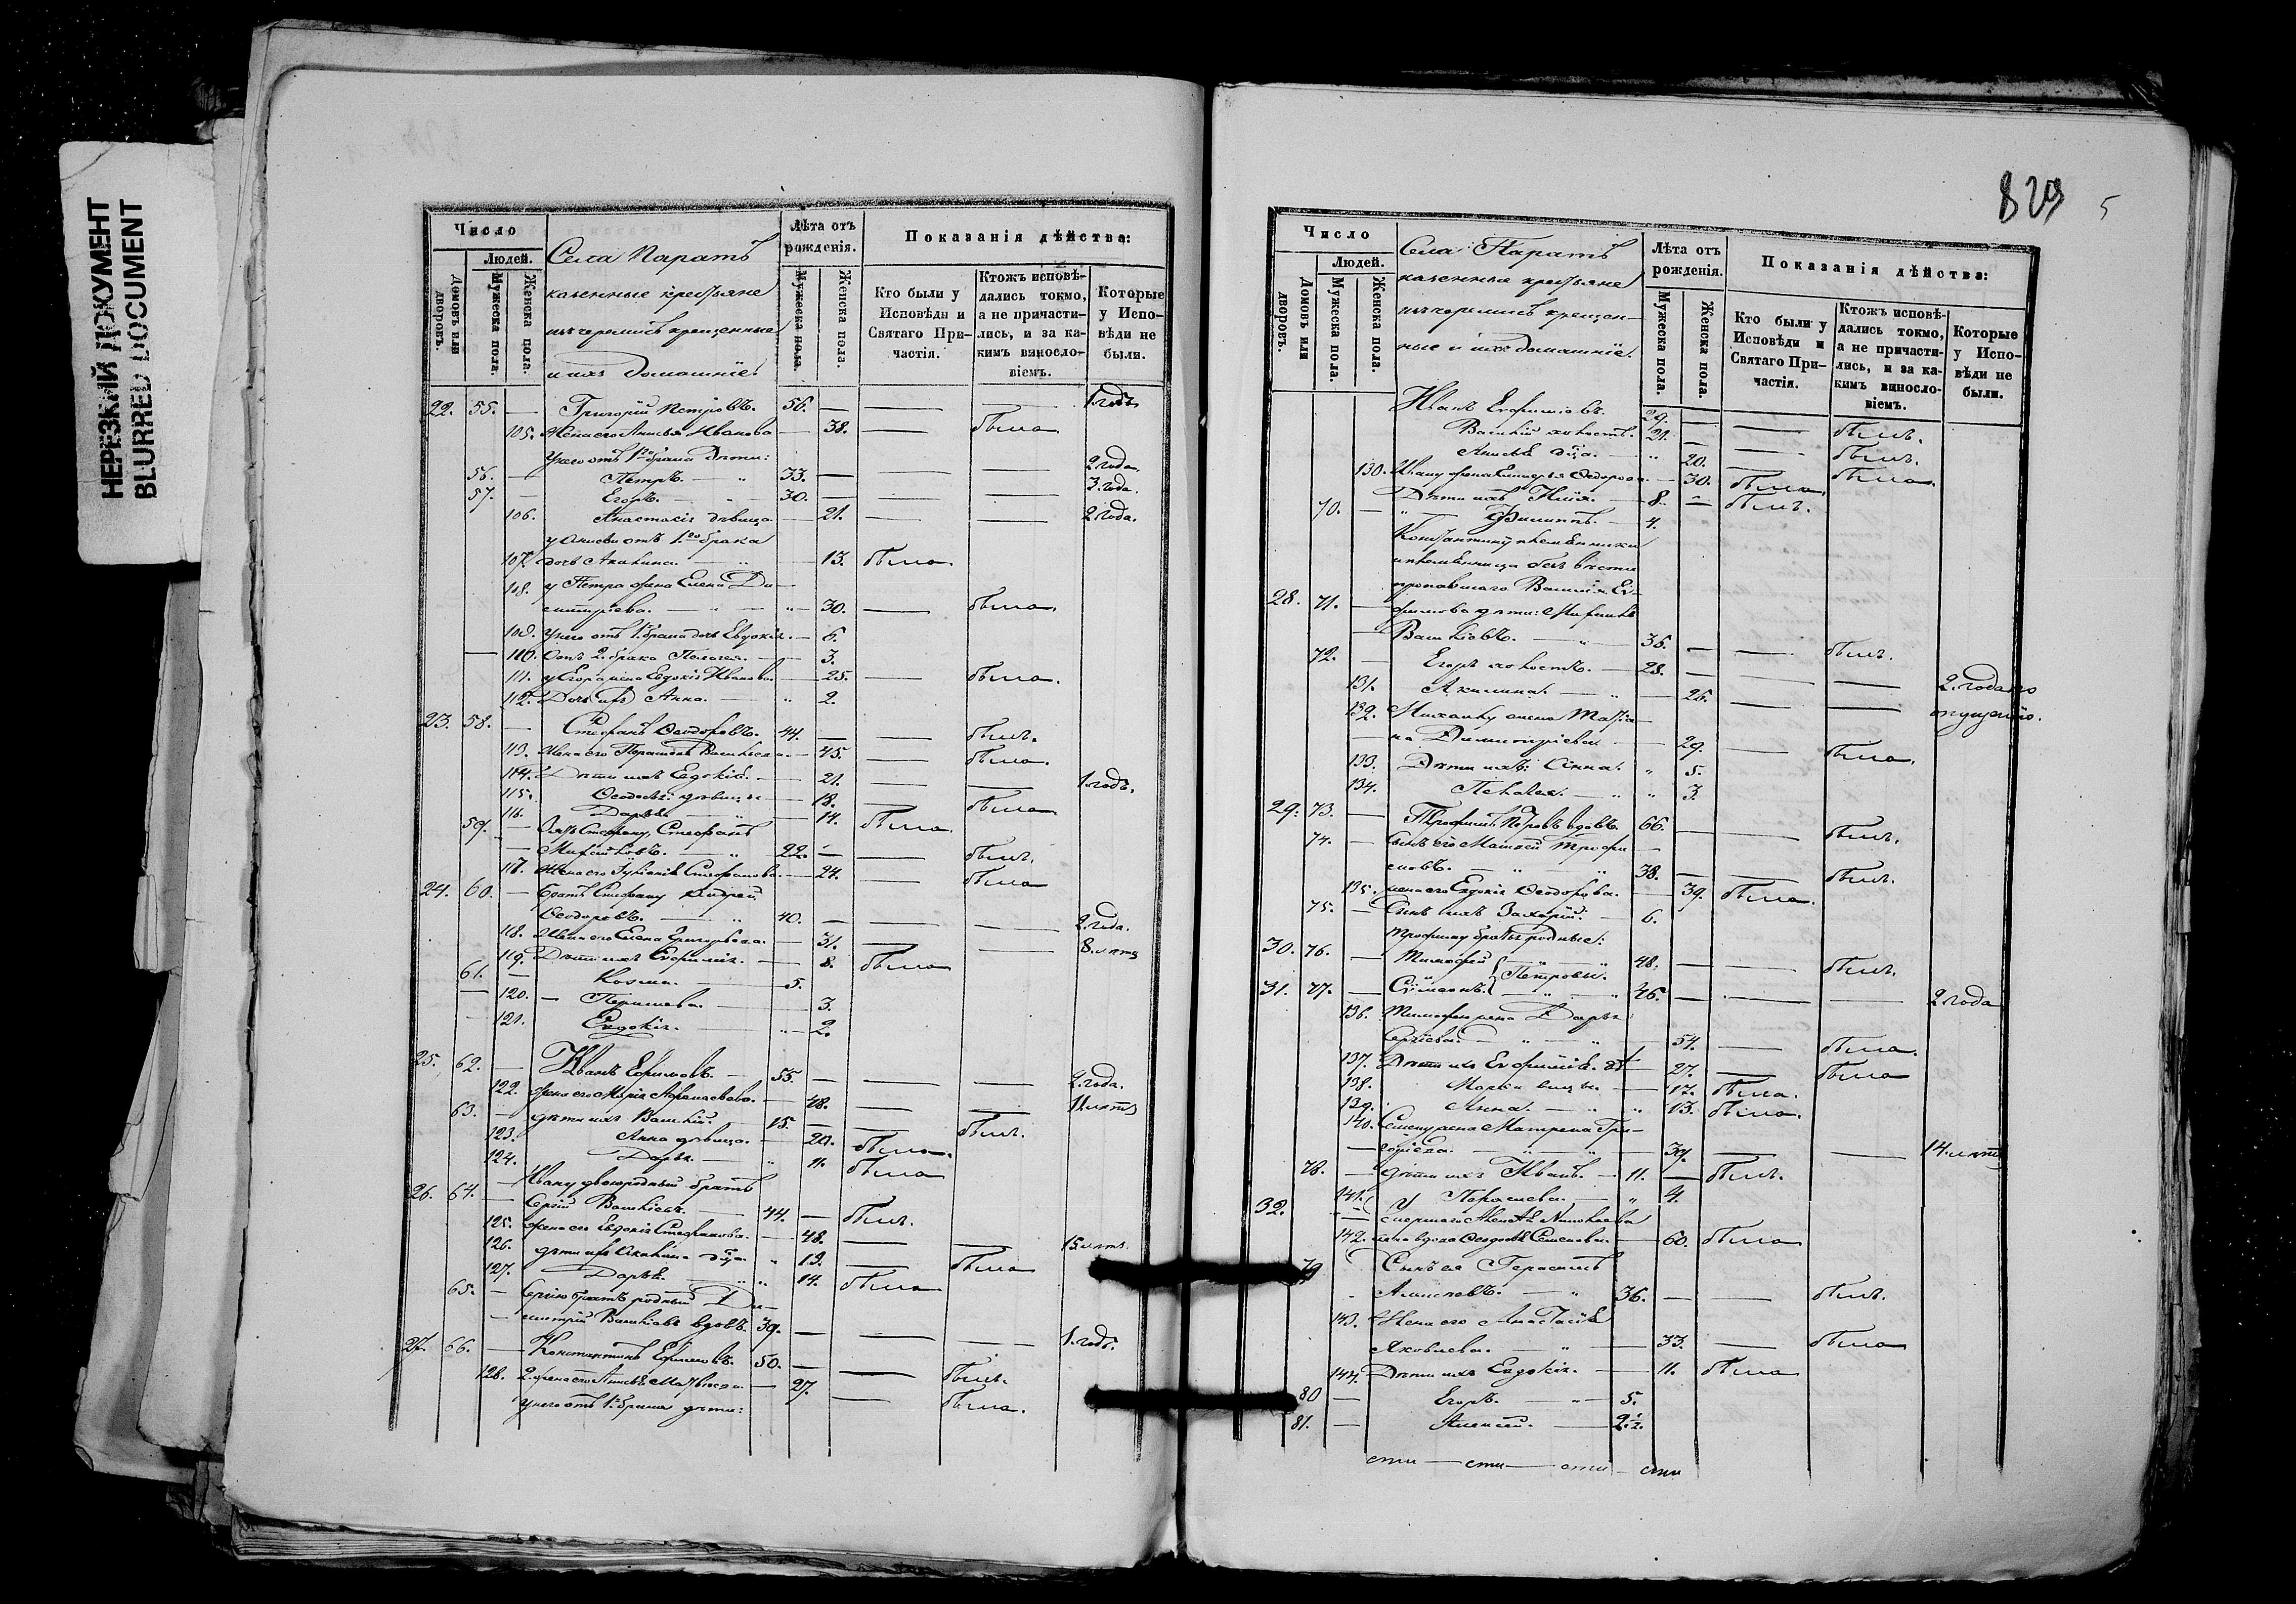 НЕРЕЗКИЙ ДОКУМЕНТ
BLURRED DOCUMENT
Число
Людей.
Домовъ или дворовъ.
Мужеска пола.
Женска пола.
Села Паратъ
казенные крестьяне
изъ черемисъ крещенные
и ихъ домашніе.
Лѣта отъ рожденія.
Мужеска пола.
Женска пола.
Показанія дѣйства:
Кто были у Исповѣди и Святаго Причастія.
Ктожъ исповѣдались токмо, а не причастились, и за какимъ винословіемъ.
Которые у Исповѣди не были.
22. 55. — Григорій Петровъ. 56. — — — 1. годъ.
105. Жена его Анисья Иванова — 38. — была.
У него отъ 1го брака дѣти:
56. — Петръ. — " 33. — — — 2 года.
57. — Егоръ. — " — 30. — — — 3. года.
106. Анастасія дѣвица — 21. — — 2 года.
у Анисьи отъ 1.го брака
107. дочь Акилина. — " — 13. была.
108. у Петра жена Елена Ди-
митріева. — " — "— 30. — была.
109. у него отъ 1. брака дочь Евдокія. — 6.
110. Отъ 2. брака Пелагея. — 3.
111. у Егора жена Евдокія Иванова. — 25. — была.
112. Дочь ихъ Анна. — " 2.
23. 58. — Стефанъ Ѳеодоровъ. 44. — — былъ.
113. Жена его Параскева Васильева — 45. — была.
114. Дѣти ихъ Евдокія. — 21. — — 1. годъ.
115. Ѳеодосья дѣвицы — 18. — была
116. Дарья — 14. была.
59. — Зять Стефану, Стефанъ
— Михайловъ. — " 22. — — былъ.
117. Жена его Іуліанія Стефанова. — 24. — была
24. 60. — Братъ Стефану Андрей
Ѳеодоровъ. — " 40. — — — 2. года.
118. Жена его Елена Григорьева. — 31. — — 8. лѣтъ
119. Дѣти ихъ Евфимія. — 8. была
61. — Козма. — 5.
120. — Параскева. — 3.
121. Евдокія. — "— 2.
25. 62. — Иванъ Ефимовъ. — 55. — — — 2. года.
122. жена его Марія Афанасьева. — 48. — — 11. лѣтъ
63. — дѣти ихъ Василій. — 15. — — былъ.
123. Анна дѣвица. — 20. была.
124. Дарья. — " 11. была
Ивану двоюродный братъ
26. 64. — Сергій Васильевъ. — 44. — былъ.
125. жена его Евдокія Стефанова. — 48. — — 15. лѣтъ.
126. дѣти ихъ Акилина д-ца " 19. — была
127. Дарья. — " " 14. была
65. — Сергію братъ родный Ди-
— митрій Васильевъ вдовъ. 39. — — — 1. годъ.
27. 66. — Константинъ Ефимовъ. 50. — — былъ.
128. 2. жена его Анисья Матвѣева — 27. — была.
у него отъ 1. брака дѣти:
829 5
Число
Людей.
Домовъ или дворовъ.
Мужеска пола.
Женска пола.
Села Паратъ
казенные крестьяне
изъ черемисъ крещен-
ные и ихъ домашніе.
Лѣта отъ рожденія.
Мужеска пола.
Женска пола.
Показанія дѣйства:
Кто были у Исповѣди и Святаго Причастія.
Ктожъ исповѣдались токмо, а не причастились, и за какимъ винословіемъ.
Которые у Исповѣди не были.
Иванъ 29. — — былъ.
Василій холостъ. 21. — — былъ.
Анисья д-ца. — " 20. — была.
130. Ивану жена Ѳеодорова. — 30. была.
Дѣти ихъ Илія. — 8. — былъ.
70. — " — Филиппъ. — 4.
Константину племянники
и племянница безъ вѣсти
пропавшаго Василія Е-
28. 71. — фимова дѣти: Михаилъ
— Васильевъ. — " 35. — — былъ.
72. — Егоръ холостъ. — 28. — — — 2. года по
131. Акилина. — " — 26. — — опущенію.
132. Михаилу жена Татья-
на Димитріева — 29. — была.
133. Дѣти ихъ: Анна. " 5.
134. Пелагея. — " " 3.
29. 73. — Трофимъ Петровъ вдовъ. 66. — — былъ.
74. — сынъ его Матвей Трофи-
мовъ. — " — " 38. — — былъ.
135. жена его Евдокія Ѳеодорова. — 39. была.
75. — Сынъ ихъ Захарій. — 6.
Трофиму братья родные:
30. 76. — Тимофей — " 48. — — былъ.
Петровы.
31. 77. — Сѵмеонъ. — " 46. — — — 2 года
136. Тимофея жена Дарья
Сергіева. — " — " — 54. — была.
137. Дѣти ихъ Евфимія. — 27. — была
138. Марья — 17. была.
139. Анна. — " " 13. была.
140. Семену жена Матрена Гри-
— горіева. — " — " — 39. — — 14. лѣтъ
78. — дѣти ихъ Иванъ. — 11. — былъ.
141. Параскева. — " 4.
32. — У умершаго Николаева
142. жена вдова Ѳеодосья Семенова. — 60. была
79 Сынъ ея Герасимъ
— " 36. — — былъ.
143. Жена его Анастасія
Яковлева. — " — 33. — была
144. Дѣти ихъ Евдокія. — 11. была
80 — Егоръ. — " — 5.
81. — Алексій. — 2 1/2.
сти — сти — сти — сти